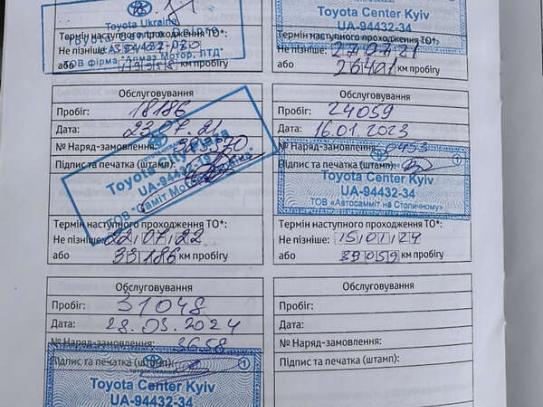 Toyota Ukraine
Термін наступного проходження ТО*:
Не пізніше:
або км пробігу
Toyota Center Kyiv
UA-94432-34
Термін наступного проходження ТО*:
Не пізніше: 27.07.21
або км пробігу
Обслуговування
Пробіг: 18186
Дата: 23.07.21
№ Наряд-замовлення:
Підпис та печатка (штамп):
Toyota
UA-94432-19
Термін наступного проходження ТО*:
Не пізніше: 22/07/22
або 33186 км пробігу
Обслуговування
Пробіг: 24059
Дата: 16.01.2023
№ Наряд-замовлення: 0453
Підпис та печатка (штамп):
Toyota Center Kyiv
UA-94432-34
ТОВ «Автосаміт на Столичному»
Термін наступного проходження ТО*:
Не пізніше: 15/01/24
або 39059 км пробігу
Обслуговування
Пробіг: 31048
Дата: 28.03.2024
№ Наряд-замовлення: 3658
Підпис та печатка (штамп):
Toyota Center Kyiv
UA-94432-34
Обслуговування
Пробіг:
Дата:
№ Наряд-замовлення:
Підпис та печатка (штамп):